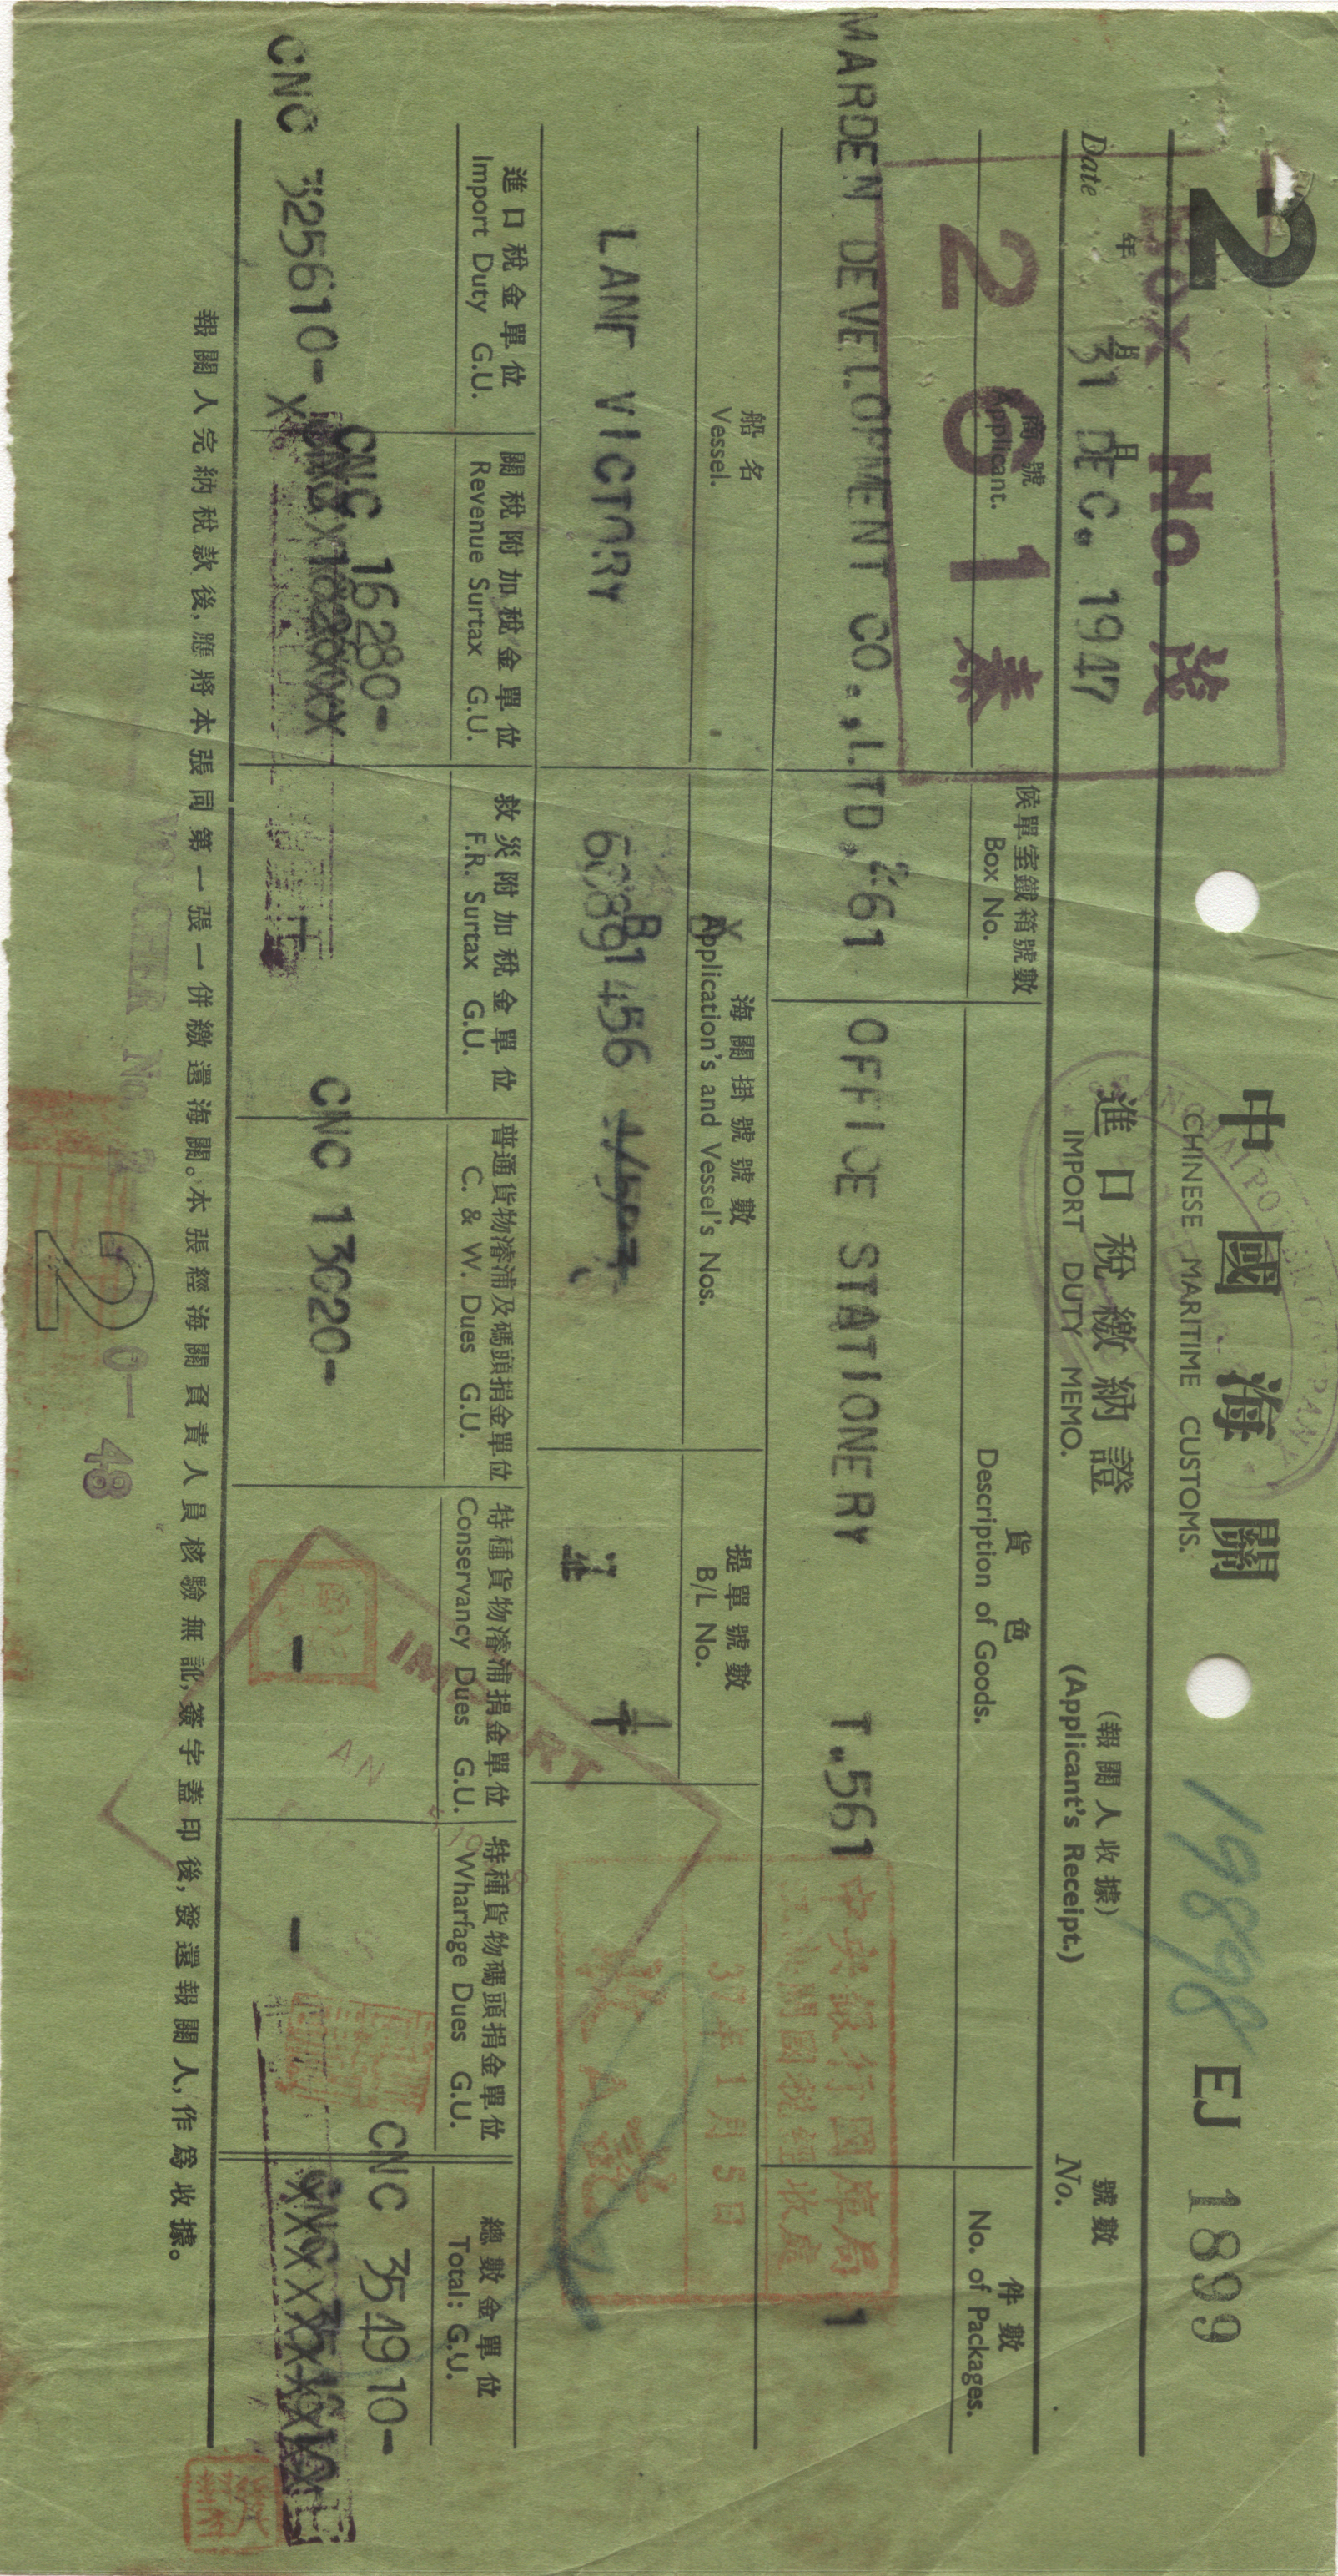 2
中國海關
CHINESE MARITIME CUSTOMS.
19898
EJ 1899
Box No. 茂
261泰
Date 年 月 日
31 DEC. 1947
進口稅繳納證
IMPORT DUTY MEMO.
(報關人收據)
(Applicant's Receipt.)
號數
No.
商號
Applicant.
候單室鐵箱號數
Box No.
貨色
Description of Goods.
件數
No. of Packages.
MARDEN DEVELOPMENT CO.,LTD. 261 OFFICE STATIONERY T.561 1
船名
Vessel.
海關掛號號數
Application's and Vessel's Nos.
提單號數
B/L No.
LANE VICTORY
1456
中央銀行國庫局
關稅經收處
37年1月5日
收
IMPORT
進口稅金單位
Import Duty G.U.
關稅附加稅金單位
Revenue Surtax G.U.
救災附加稅金單位
F.R. Surtax G.U.
普通貨物濬浦及碼頭捐金單位
C. & W. Dues G.U.
特種貨物濬浦捐金單位
Conservancy Dues G.U.
特種貨物碼頭捐金單位
Wharfage Dues G.U.
總數金單位
Total: G.U.
CNC 325610-
CNC 16280-
CNC 13020-
-
-
CNC 354910-
報關人完納稅款後,應將本張同第一張一併繳還海關。本張經海關負責人員核驗無訛,簽字蓋印後,發還報關人,作爲收據。
VOUCHER No.
2
48